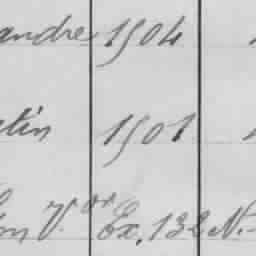 andre 1504
tin 1501
V.or Ex. 132 N.